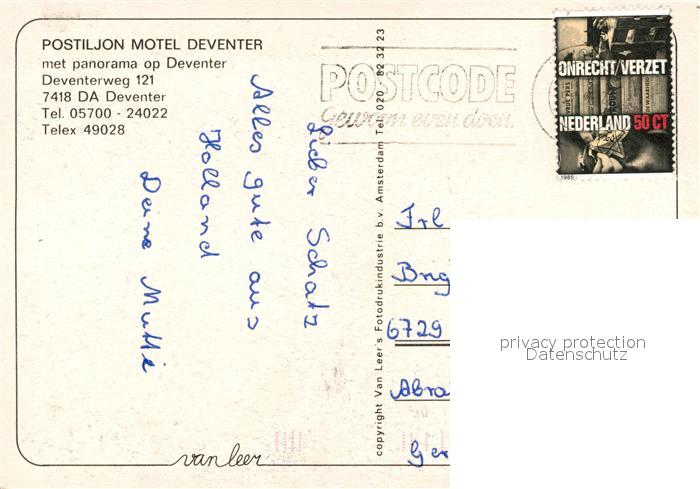 POSTILJON MOTEL DEVENTER
met panorama op Deventer
Deventerweg 121
7418 DA Deventer
Tel. 05700 - 24022
Telex 49028
POSTCODE
Gewoon even doen.
ONRECHT/VERZET
NEDERLAND 50 CT
1985
Lieber Schatz
Alles gute aus
Holland
Deine Mutti
copyright Van Leer's Fotodrukindustrie b.v. Amsterdam Tel. 020 - 82 32 23
Frl
Brig
6729
Abra
Ger
privacy protection
Datenschutz
van leer